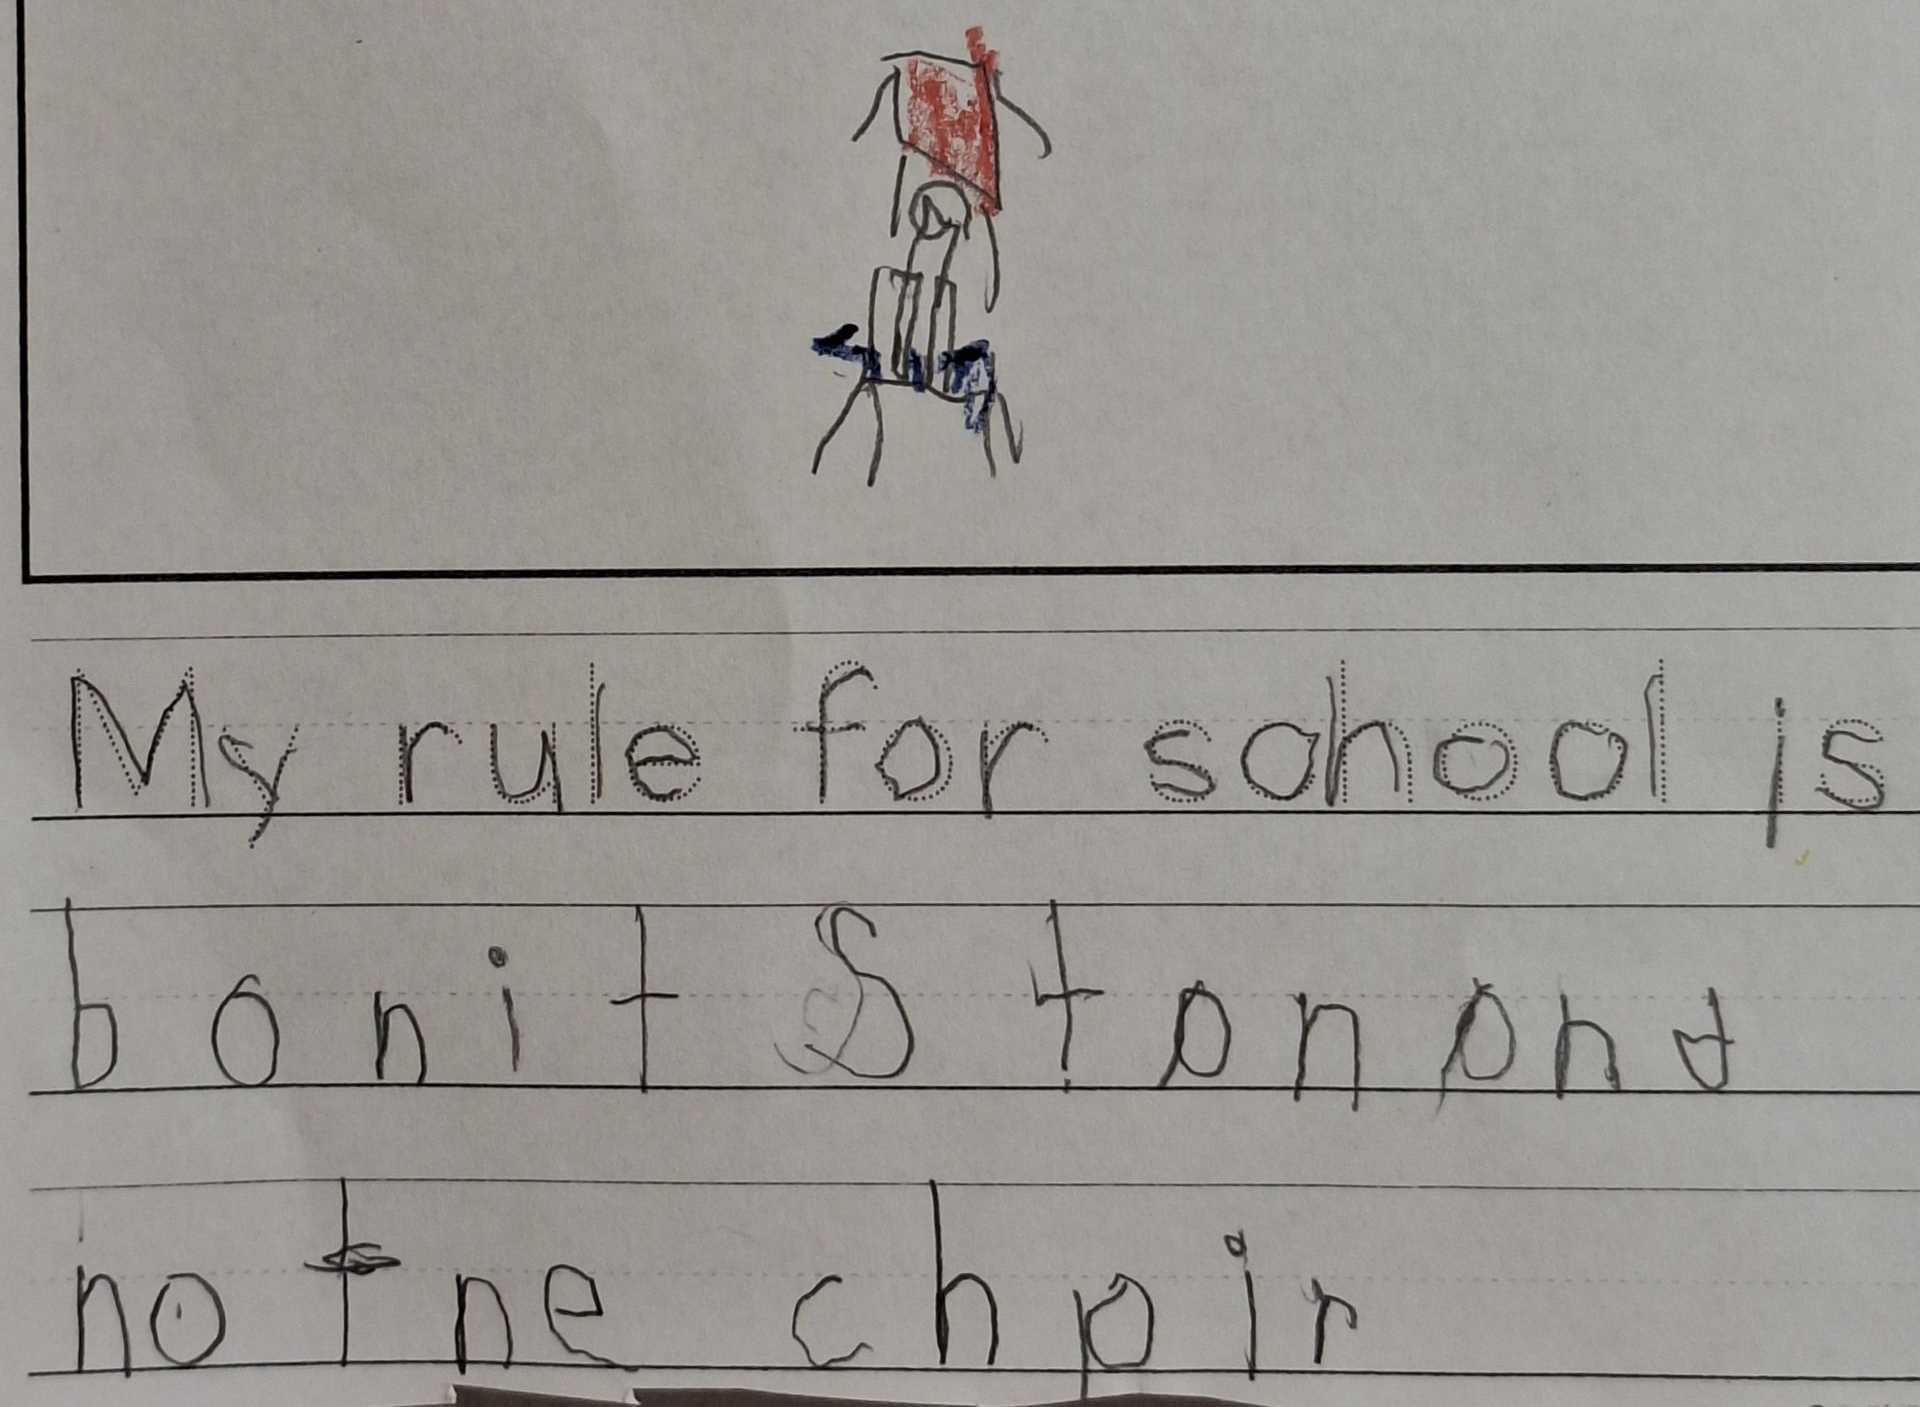 My rule for school is
bonit Stanand
no tne chair